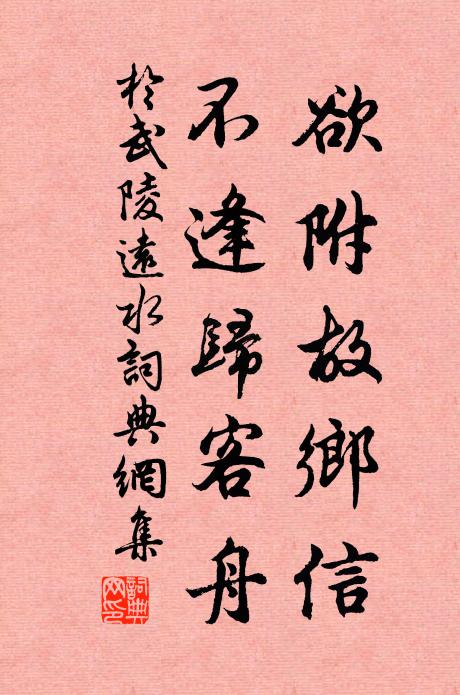 欲附故鄉信
不逢歸客舟
於武陵遠水詞典網集
詞典
网印